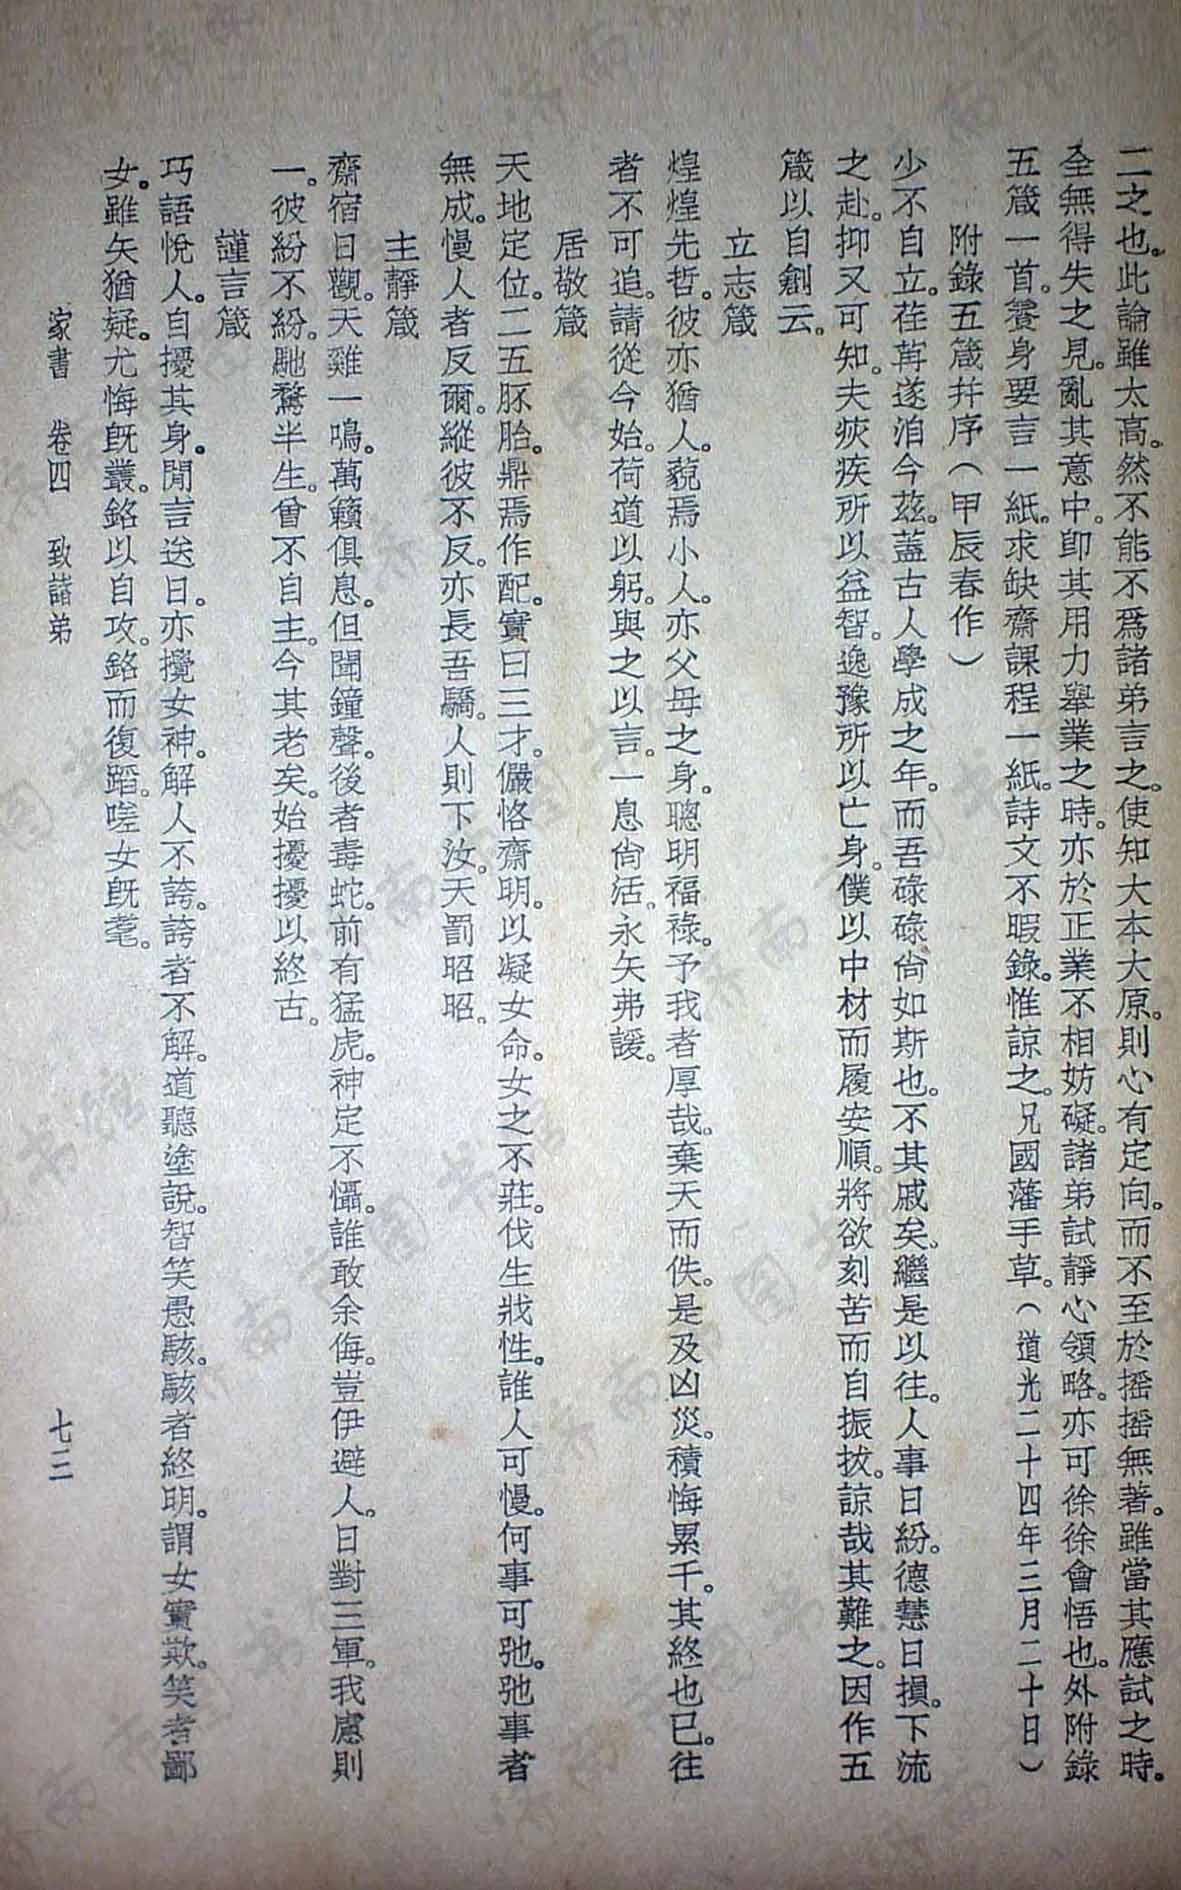 二之也。此論雖太高。然不能不爲諸弟言之。使知大本大原。則心有定向。而不至於搖搖無著。雖當其應試之時。
全無得失之見。亂其意中。卽其用力舉業之時。亦於正業不相妨礙。諸弟試靜心領略。亦可徐徐會悟也。外附錄
五箴一首。養身要言一紙。求缺齋課程一紙。詩文不暇錄。惟諒之。兄國藩手草。（道光二十四年三月二十日）
附錄五箴幷序（甲辰春作）
少不自立。荏苒遂洎今茲。蓋古人學成之年。而吾碌碌尙如斯也。不其戚矣。繼是以往。人事日紛。德慧日損。下流
之赴。抑又可知。夫疢疾所以益智。逸豫所以亡身。僕以中材而履安順。將欲刻苦而自振拔。諒哉其難之。因作五
箴以自創云。
立志箴
煌煌先哲。彼亦猶人。藐焉小人。亦父母之身。聰明福祿。予我者厚哉。棄天而佚。是及凶災。積悔累千。其終也已。往
者不可追。請從今始。荷道以躬。與之以言。一息尙活。永矢弗諼。
居敬箴
天地定位。二五胚胎。鼎焉作配。實曰三才。儼恪齋明。以凝女命。女之不莊。伐生戕性。誰人可慢。何事可弛。弛事者
無成。慢人者反爾。縱彼不反。亦長吾驕。人則下汝。天罰昭昭。
主靜箴
齋宿日觀。天雞一鳴。萬籟俱息。但聞鐘聲。後者毒蛇。前有猛虎。神定不懾。誰敢余侮。豈伊避人。日對三軍。我慮則
一。彼紛不紛。馳騖半生。曾不自主。今其老矣。始擾擾以終古。
謹言箴
巧語悅人。自擾其身。閒言送日。亦攪女神。解人不誇。誇者不解。道聽塗說。智笑愚駭。駭者終明。謂女實欺。笑者鄙
女。雖矢猶疑。尤悔旣叢。銘以自攻。銘而復蹈。嗟女旣耄。
家書 卷四 致諸弟 七三